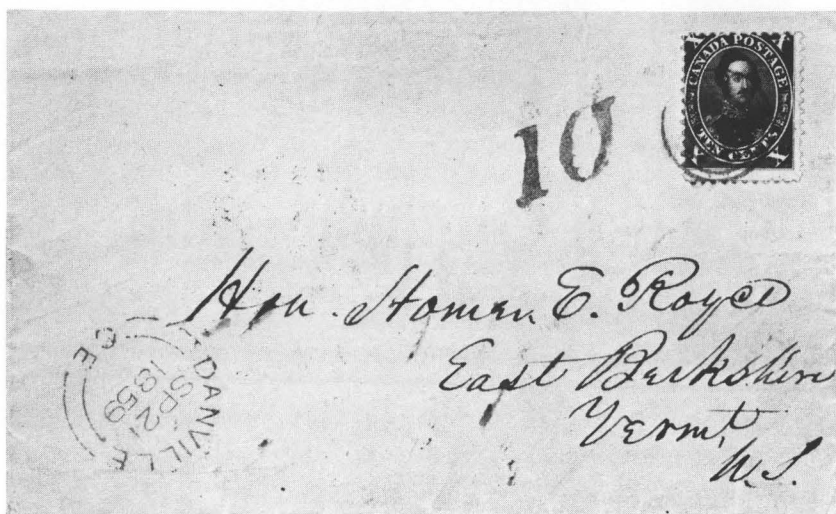 CANADA POSTAGE
TEN CENTS
10
Hon. Homer E. Royce
East Berkshire
Vermt,
U.S.
DANVILLE
C.E
SP 21
1859